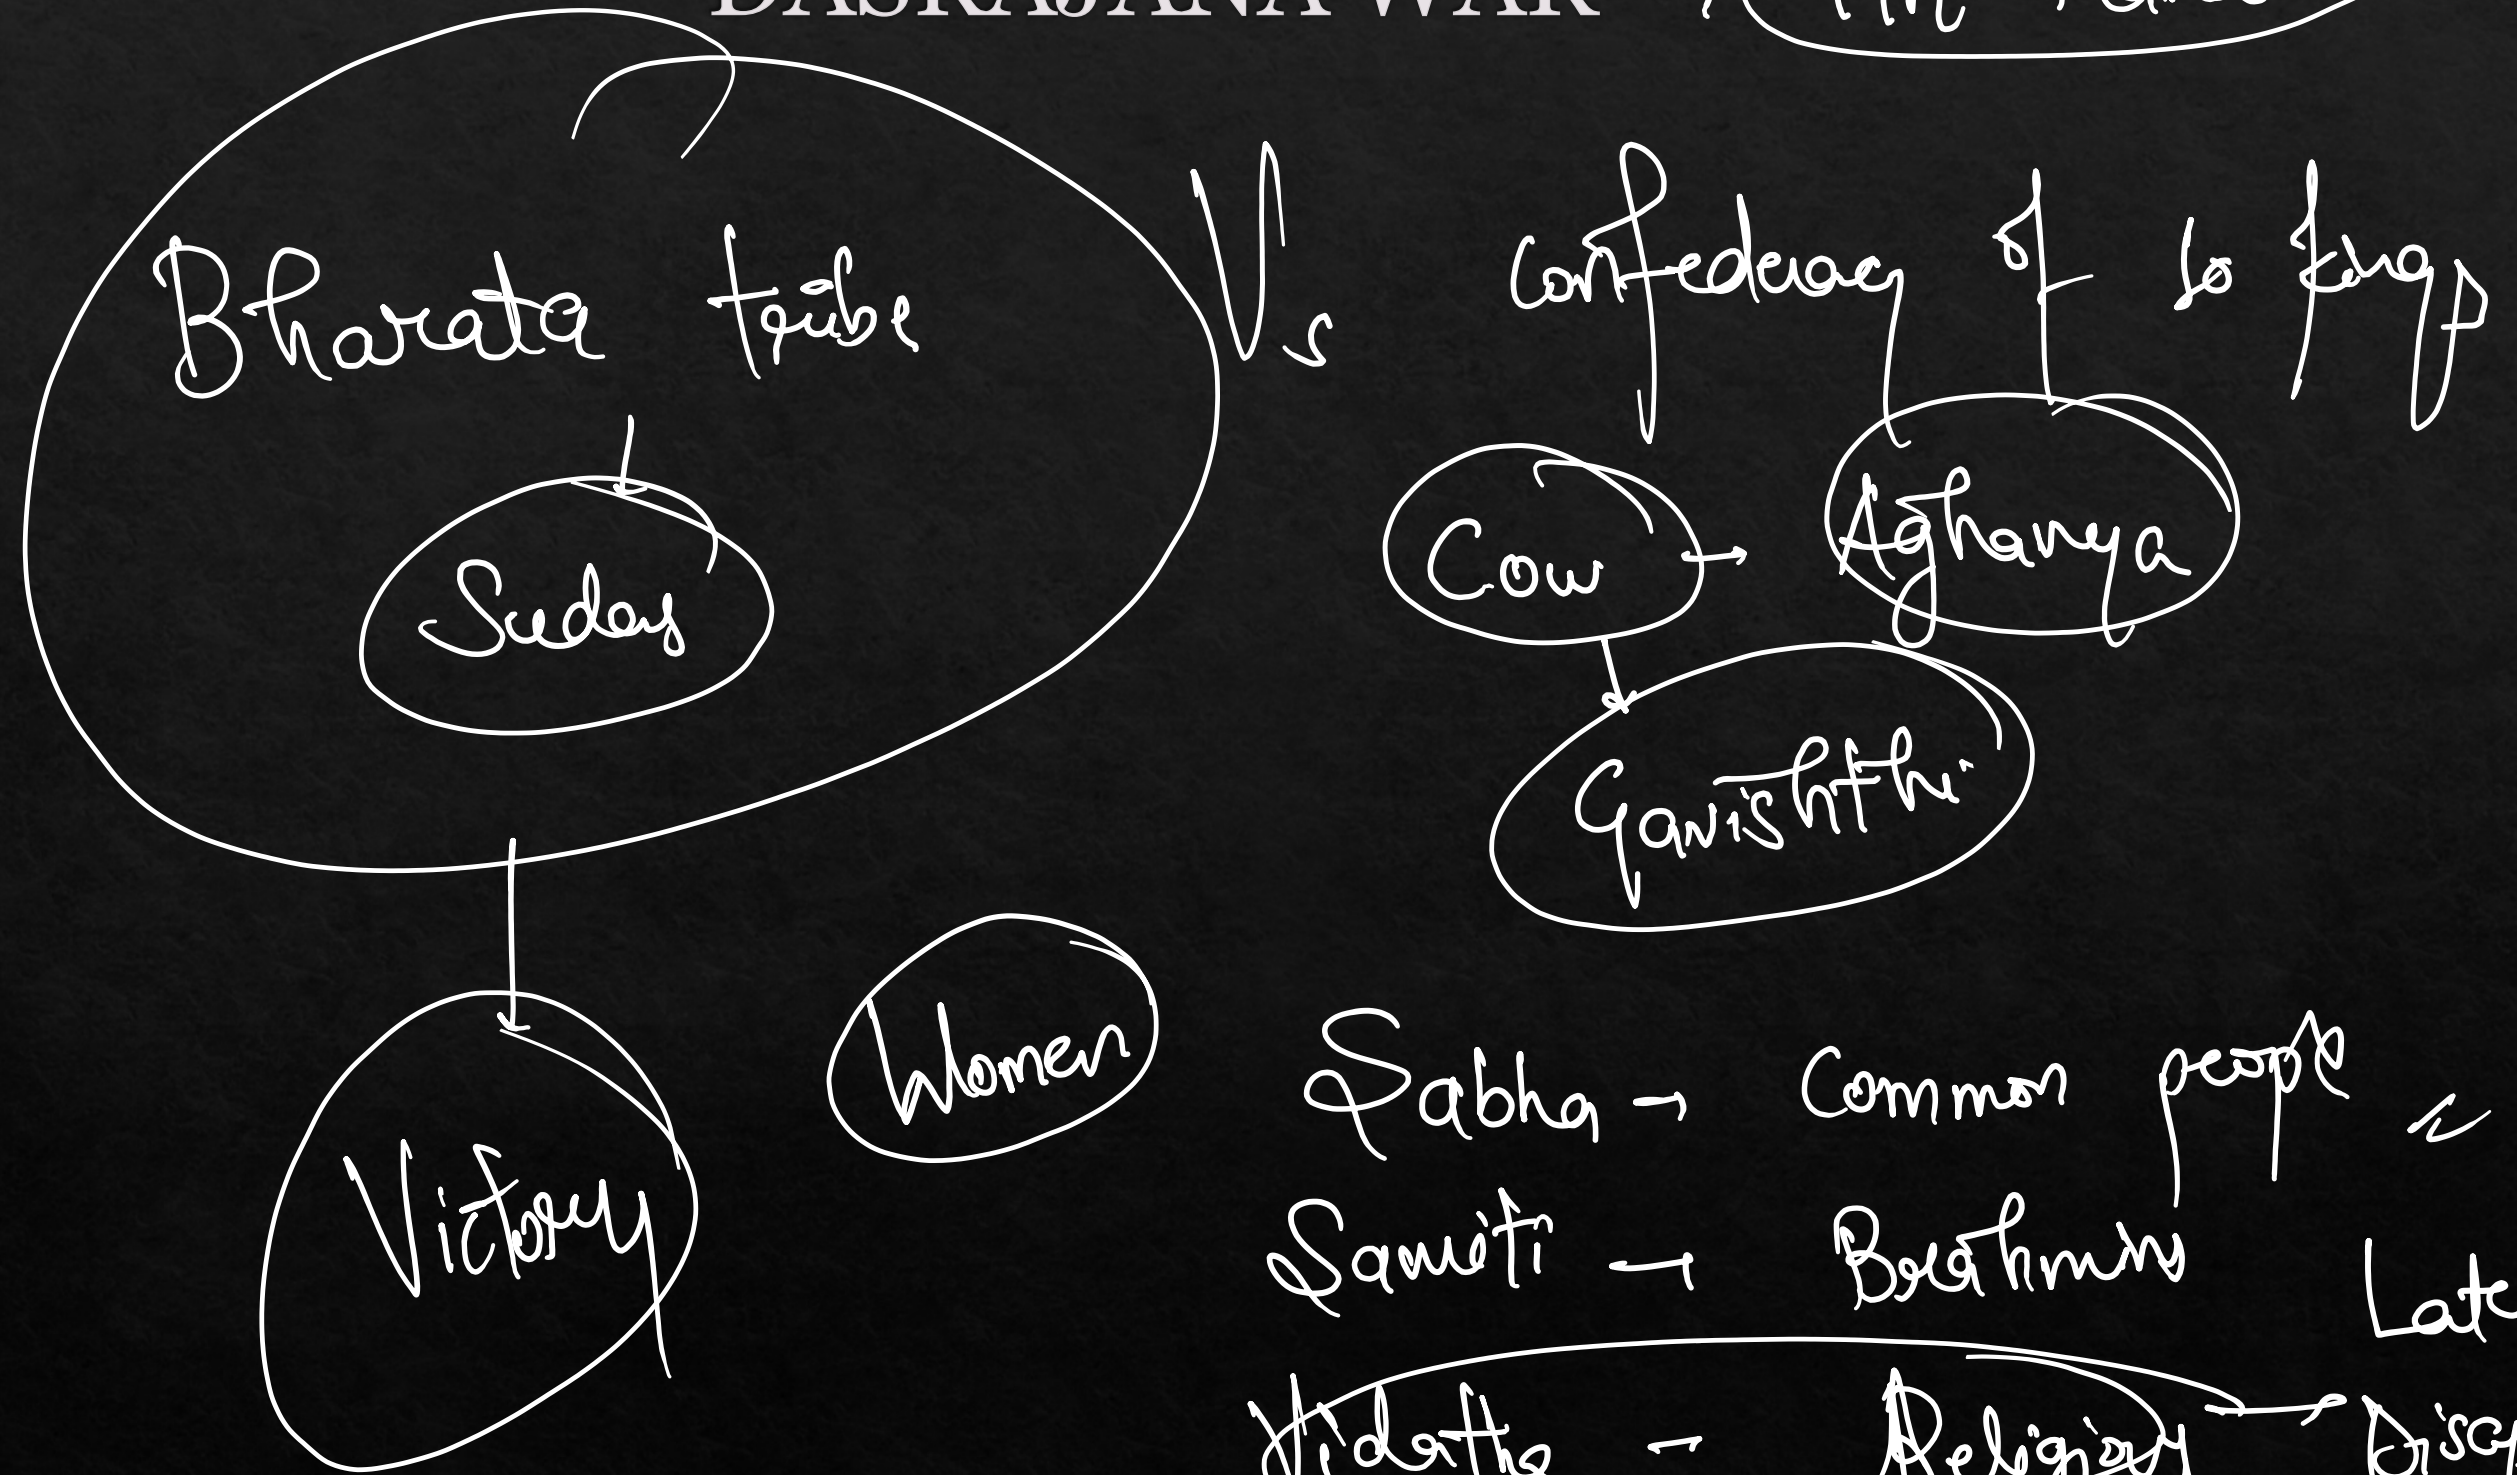 DASRAJANA WAR
Bharata tribe Vs confederacy of 10 kings
Sudas
Cow → Aghanya
Gavishthi
Victory
Women
Sabha → Common people
Samiti → Brahmins
Vidatha - Religious →